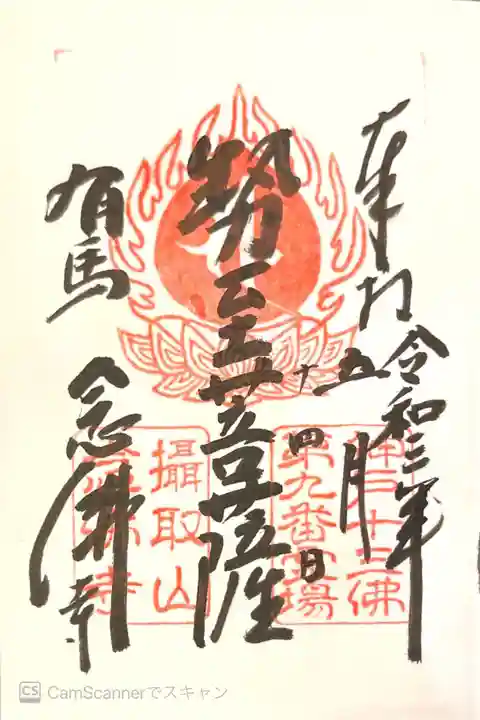 奉拝
令和三年
五月
十四日
勢至菩薩
有馬
念佛寺
神戸十三佛
第九番霊場
攝取山
念佛寺
CS CamScannerでスキャン